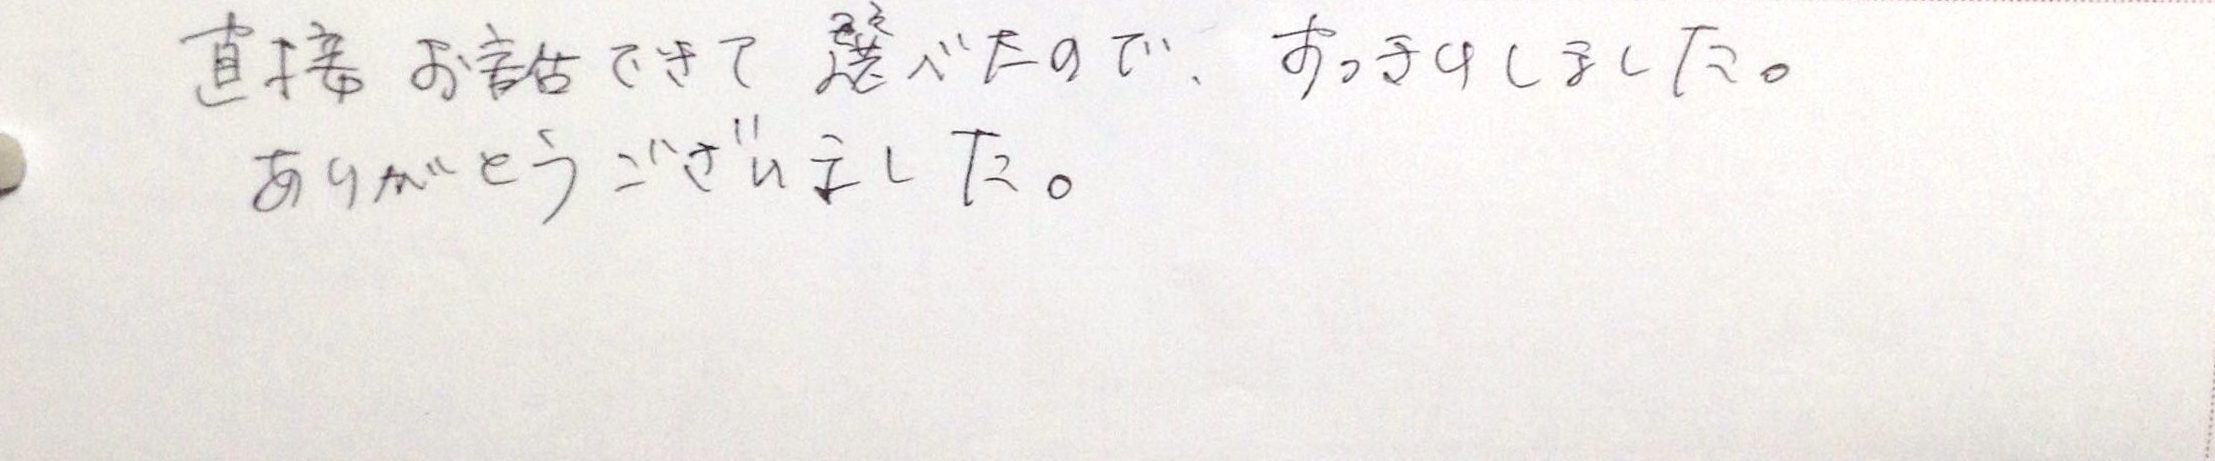 直接お話できて選べたので、すっきりしました。
ありがとうございました。